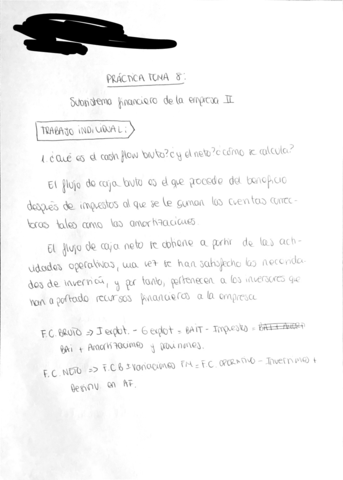 PRÁCTICA TEMA 8:
Subsistema financiero de la empresa II
TRABAJO INDIVIDUAL:
1. ¿Qué es el cash flow bruto? ¿y el neto? ¿cómo se calcula?
El flujo de caja bruto es el que procede del beneficio
después de impuestos al que se le suman las cuentas conta-
bras tales como las amortizaciones.
El flujo de caja neto se obtiene a partir de las acti-
vidades operativas, una vez se han satisfecho las necesida-
des de inversión, y por tanto, pertenecen a los inversores que
han aportado recursos financieros a la empresa.
F.C BRUTO => I explot. - G explot = BAIT - Impuestos =
BAI + Amortizaciones y
F.C NETO => F.C.B ± Variaciones FM = F.C. OPERATIVO - Inversiones +
Desinv. en AF.